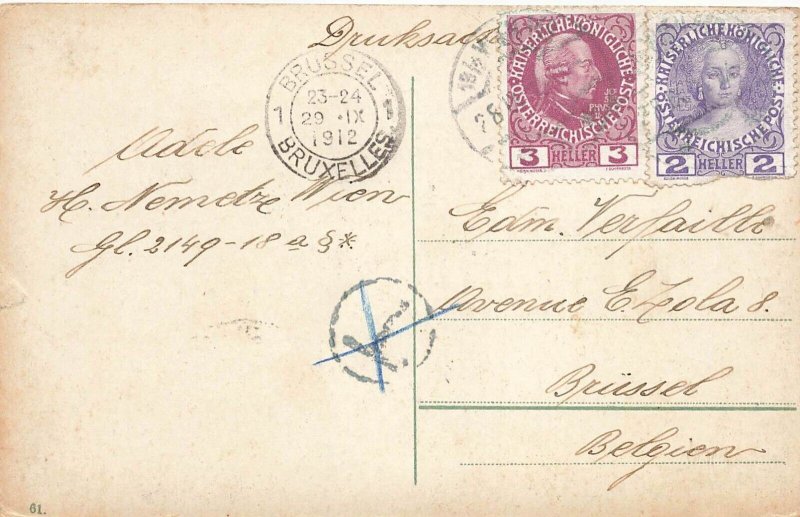 Druksache
BRÜSSEL
1 1
23-24
29 ·IX
1912
BRUXELLES
KAISERLICHE KÖNIGLICHE
ÖSTERREICHISCHE POST
3 HELLER 3
KAISERLICHE KÖNIGLICHE
ÖSTERREICHISCHE POST
2 HELLER 2
Adele
H. Nemetze Wien
Gl. 2149-18 a § *
Edm. Verfaille
Avenue E. Zola 8.
Brüssel
Belgien
61.